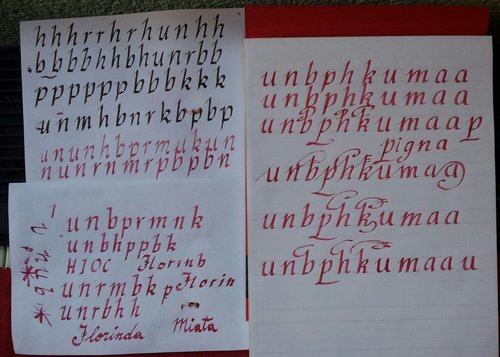 hhhrrhrhunhh
bbbbhhbhunrbb
ppppppbbbkkk
unmhbnrkbpbp
ununhbprmukun
nunrnmrpbpbn
unbprmnk
unbhppbk
HIOC Florinb
unrmbkp Florin
unrbhh
Florinda Miata
unbphkumaa
unbphkumaa
unbphkumaap
pigna
unbphkumaa
unbphkumaa
unbphkumaau